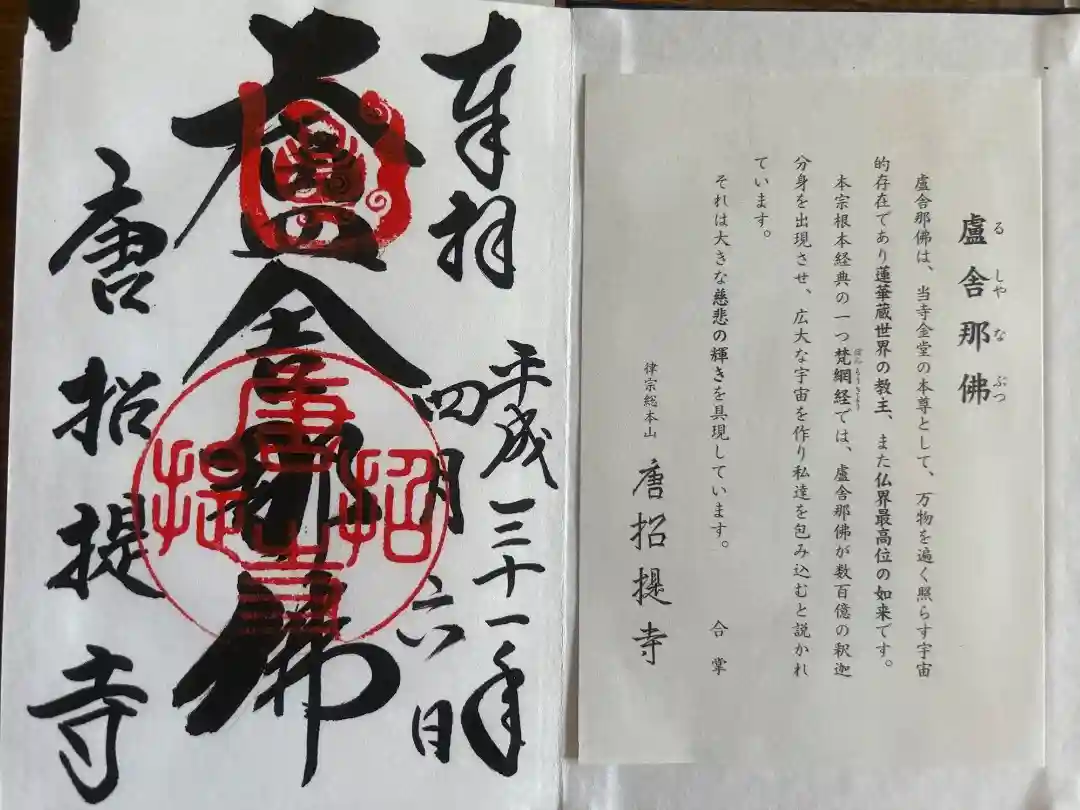 盧舎那佛
るしやなぶつ
盧舎那佛は、当寺金堂の本尊として、万物を遍く照らす宇宙
的存在であり蓮華蔵世界の教主、また仏界最高位の如来です。
本宗根本経典の一つ梵網経では、盧舎那佛が数百億の釈迦
ぼんもうきょう
分身を出現させ、広大な宇宙を作り私達を包み込むと説かれ
ています。
それは大きな慈悲の輝きを具現しています。
律宗総本山 唐招提寺 合掌
奉拝
平成三十一年
四月六日
盧舎那佛
唐招提寺
唐招提寺